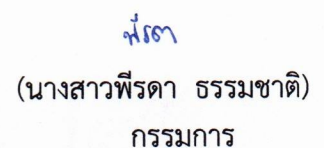 พีรดา
(นางสาวพีรดา ธรรมชาติ)
กรรมการ